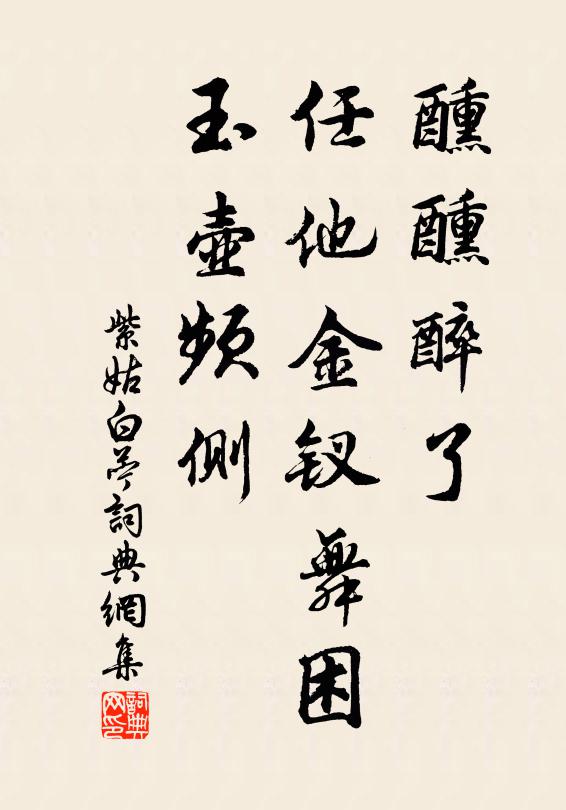 醺醺醉了
任他金钗舞困
玉壶頻侧
紫姑白苎詞典網集
詞典
网印